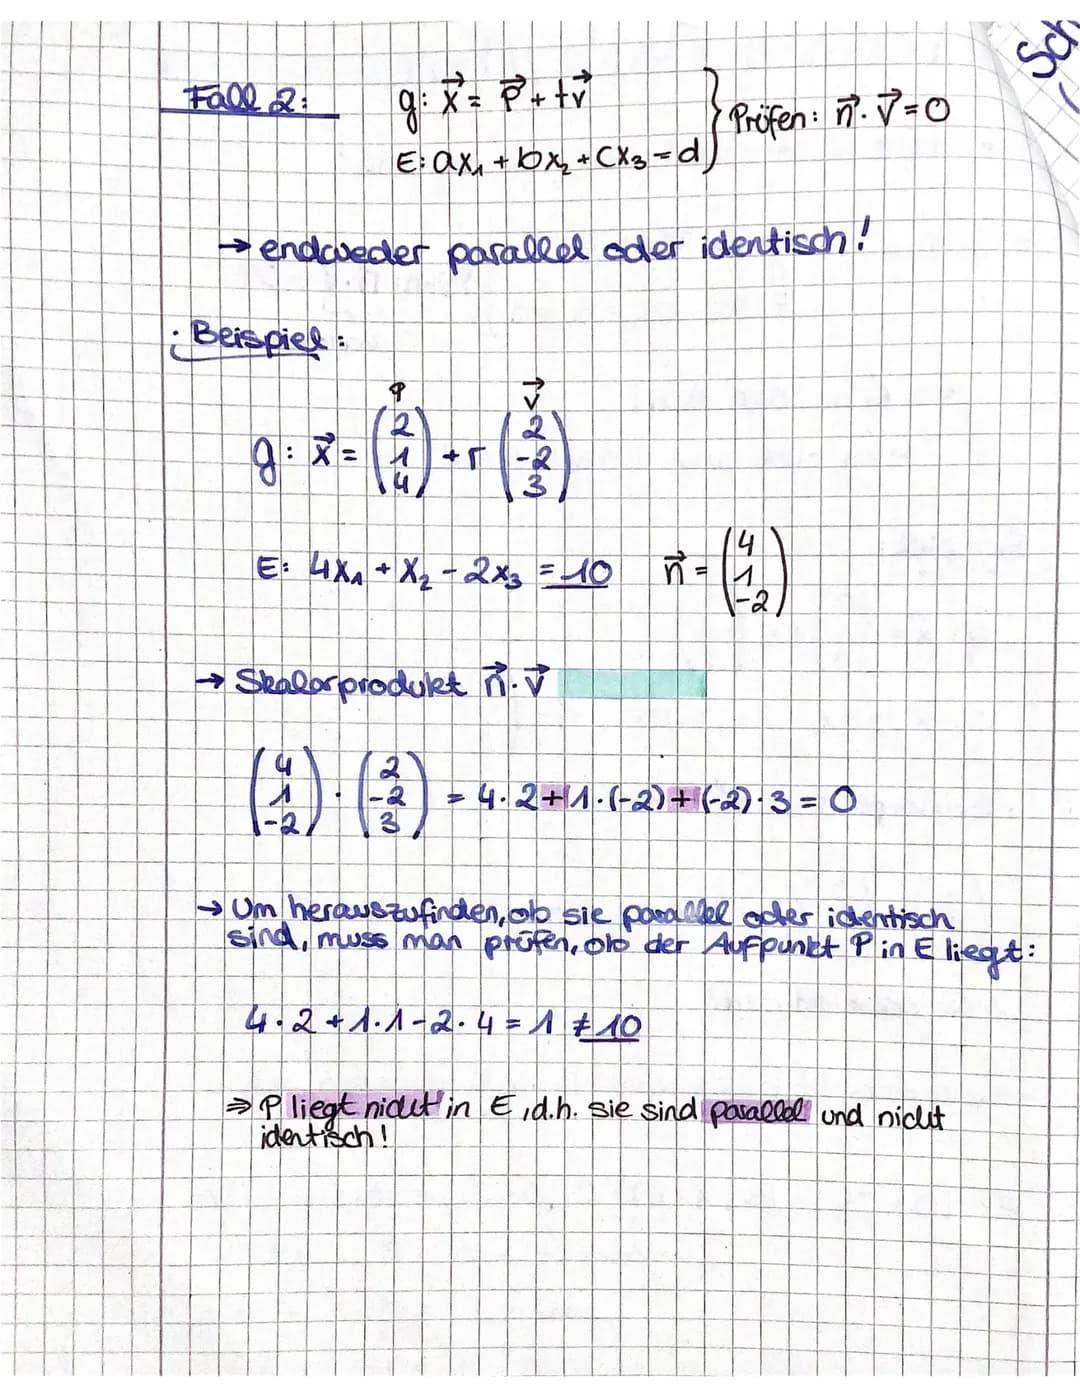 Sch
Fall 2: g: x⃗ = p⃗ + tv⃗
E: ax₁ + bx₂ + cx₃ = d } Prüfen: n⃗ · v⃗ = 0
→ endweder parallel oder identisch!
: Beispiel:
P v⃗
g: x⃗ = (2 1 4) + r (2 -2 3)
E: 4x₁ + x₂ - 2x₃ = 10 n⃗ = (4 1 -2)
→ Skalarprodukt n⃗ · v⃗
(4 1 -2) · (2 -2 3) = 4 · 2 + 1 · (-2) + (-2) · 3 = 0
→ Um herauszufinden, ob sie parallel oder identisch
sind, muss man prüfen, ob der Aufpunkt P in E liegt:
4 · 2 + 1 · 1 - 2 · 4 = 1 ≠ 10
⇒ P liegt nicht in E, d.h. sie sind parallel und nicht
identisch!